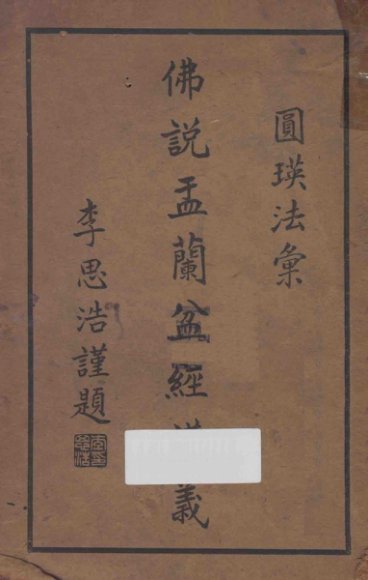 圓瑛法彙
佛說盂蘭盆經義
李思浩謹題